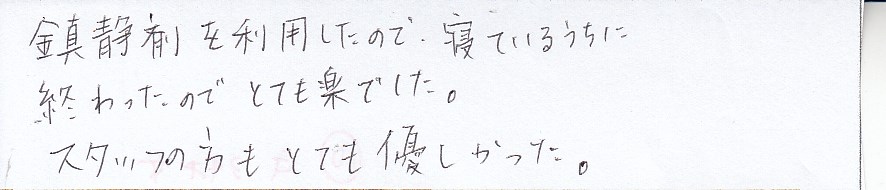 鎮静剤を利用したので、寝ているうちに
終わったのでとても楽でした。
スタッフの方もとても優しかった。